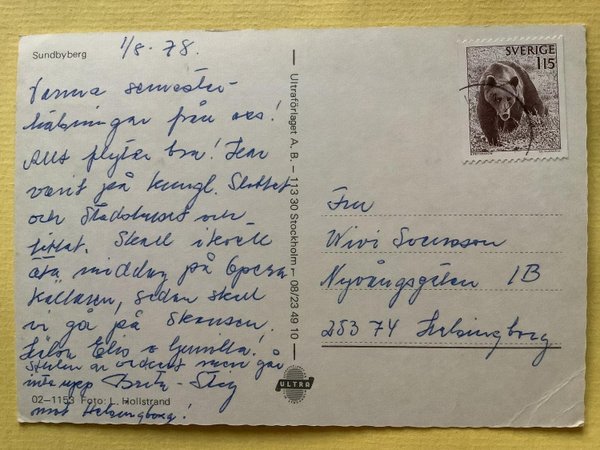 Sundbyberg
1/8-78.
Varma semester-
hälsningar från oss!
Allt flyter bra! Har
varit på Kungl. Slottet
och Stadshuset och
tittat. Skall ikväll
äta middag på Opera
källaren, sedan skall
vi gå på Skansen.
Hälsn Elis o Gunilla!
Staden är vacker men går
inte upp Brita - Stig
mot Helsingborg!
02-1153 Foto: L. Hollstrand
Ultraförlaget A. B. – 113 30 Stockholm – 08/23 49 10
ULTRA
SVERIGE
115
Fru
Wivi Svensson
Nyvångsgatan 1B
253 74 Helsingborg